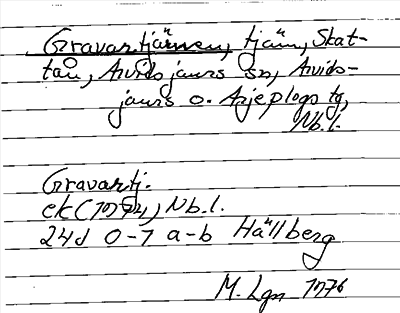 Gravartjärnen, tjärn, Skat-
tån, Arvidsjaurs sn, Arvids-
jaurs o. Arjeplogs tg,
Nb.l.
Gravartj.
ek (1972), Nb.l.
24d 0-1 a-b Hällberg
M. Lgn 1976